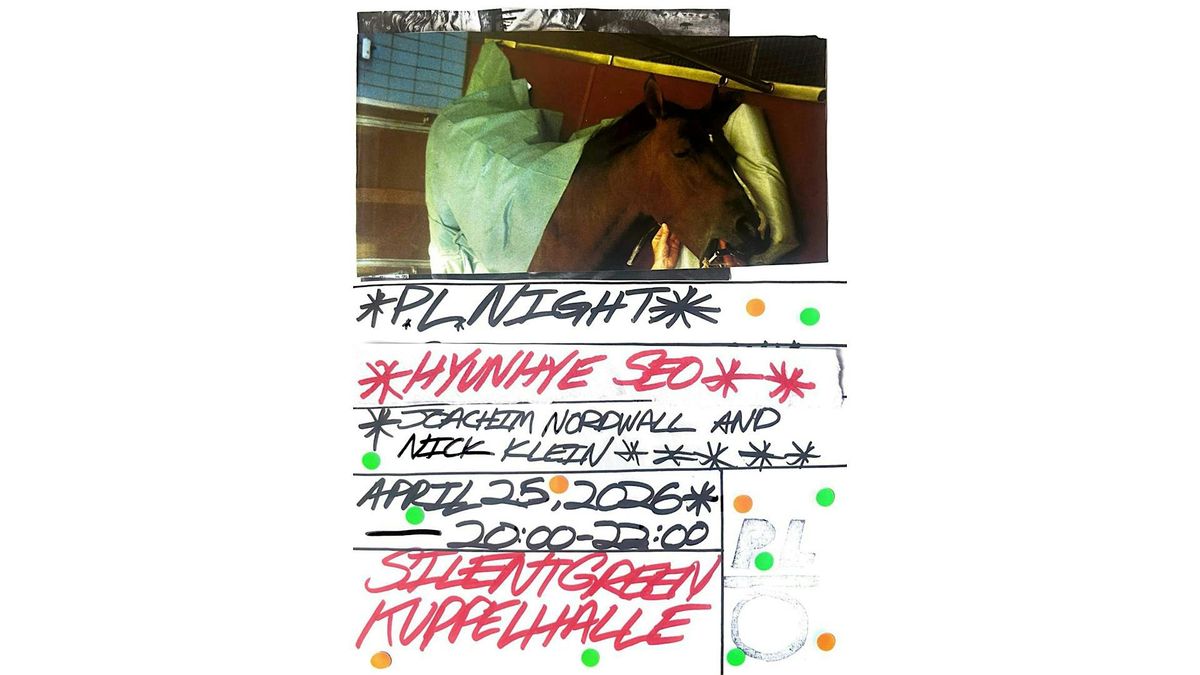 *P.L.NIGHT*
*HYUNHYE SEO**
*JOACHIM NORDWALL AND
NICK KLEIN*****
APRIL 25, 2026*
— 20:00-22:00
SILENTGREEN
KUPPELHALLE
PL
O